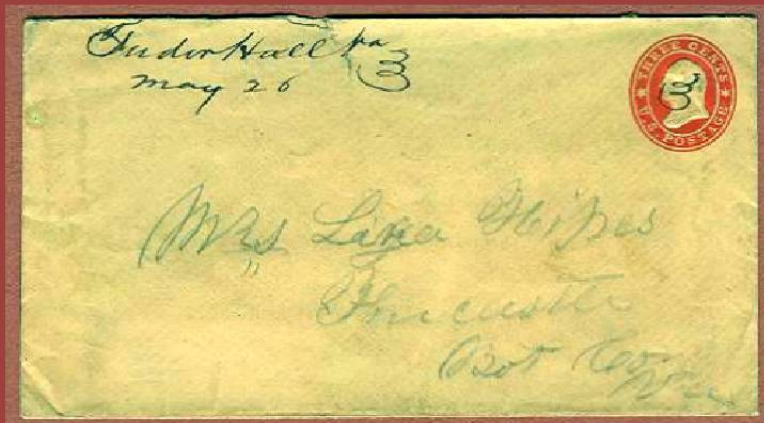 Tudor Hall Va
May 26
3
THREE CENTS
3
U.S. POSTAGE
Mrs Hipes
Fincastle
Bot Co
Va